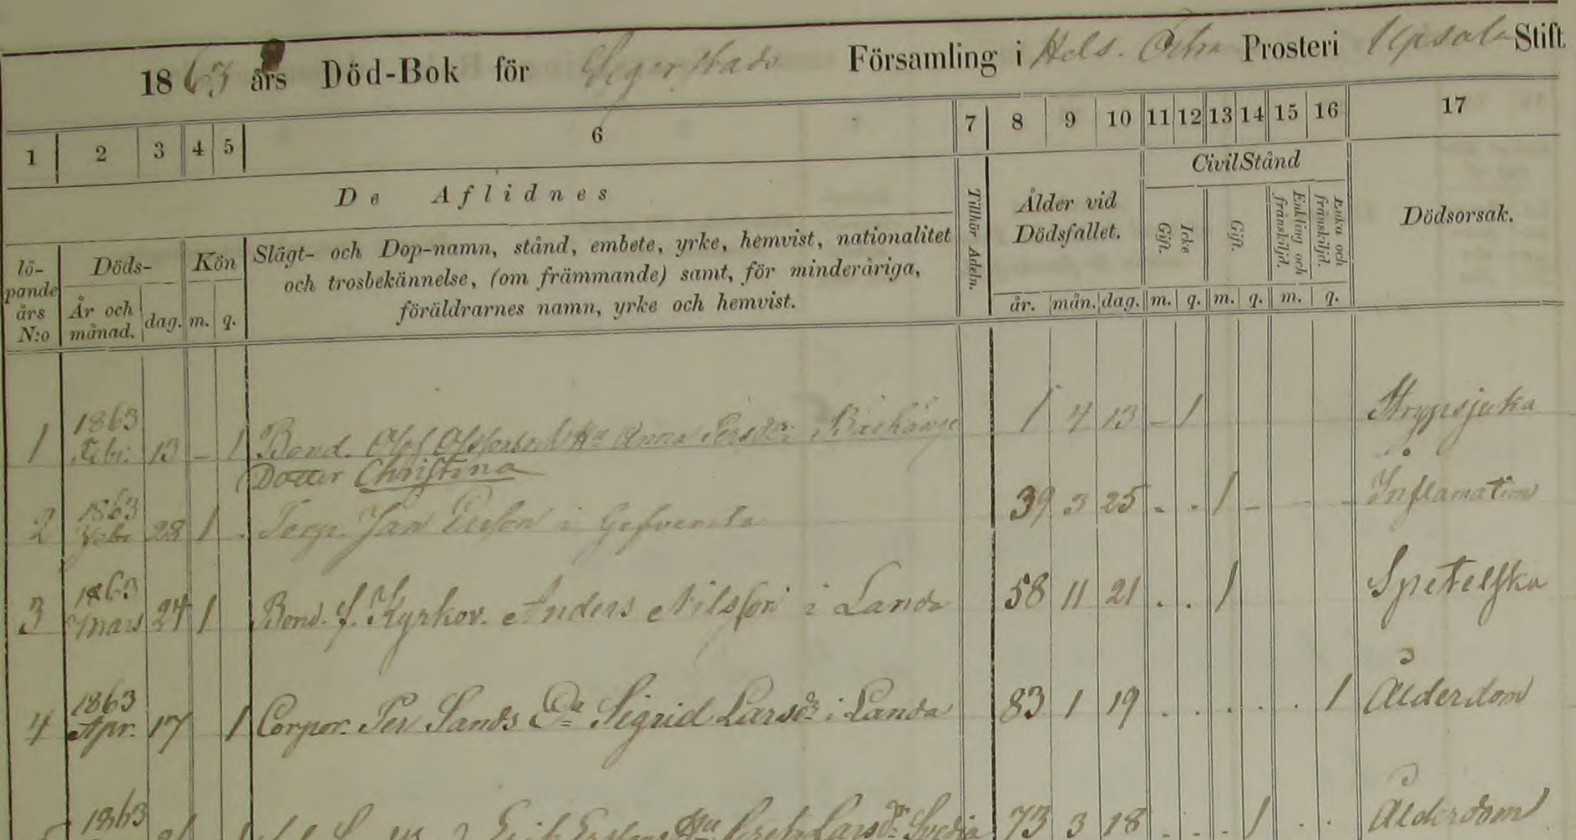 1863 års Död-Bok för Segerstads Församling i Hels. Östra Prosteri Upsala Stift
1 2 3 4 5 6 7 8 9 10 11 12 13 14 15 16 17
De Aflidnes
Tillhör Adeln.
Ålder vid Dödsfallet.
CivilStånd
Dödsorsak.
lö-
pande
års
N:o
Döds-
År och
månad.
dag.
Kön
m. q.
Slägt- och Dop-namn, stånd, embete, yrke, hemvist, nationalitet
och trosbekännelse, (om främmande) samt, för minderåriga,
föräldrarnes namn, yrke och hemvist.
år. mån. dag.
Icke
Gift.
Gift.
Enkling och
frånskiljd.
Enka och
frånskiljd.
m. q. m. q. m. q.
1 1863 Febr. 13 - 1 Bond. Olof Anna 1 4 13 - 1 Strypsjuka
Dotter Christina
2 1863 Febr 28 1 . Torp. Jan i 39 3 25 . . 1 - Inflamation
3 1863 Mars 24 1 Bond. f. Kyrkov. Anders Nilsson i Landa 58 11 21 . . 1
4 1863 Apr. 17 1 Corpor. Per Sands Ea Sigrid Larsdr i Landa 83 1 19 . . . . . 1 Ålderdom
1863 Erik Larsdr Svedja 73 3 18 . . . 1 . . Ålderdom